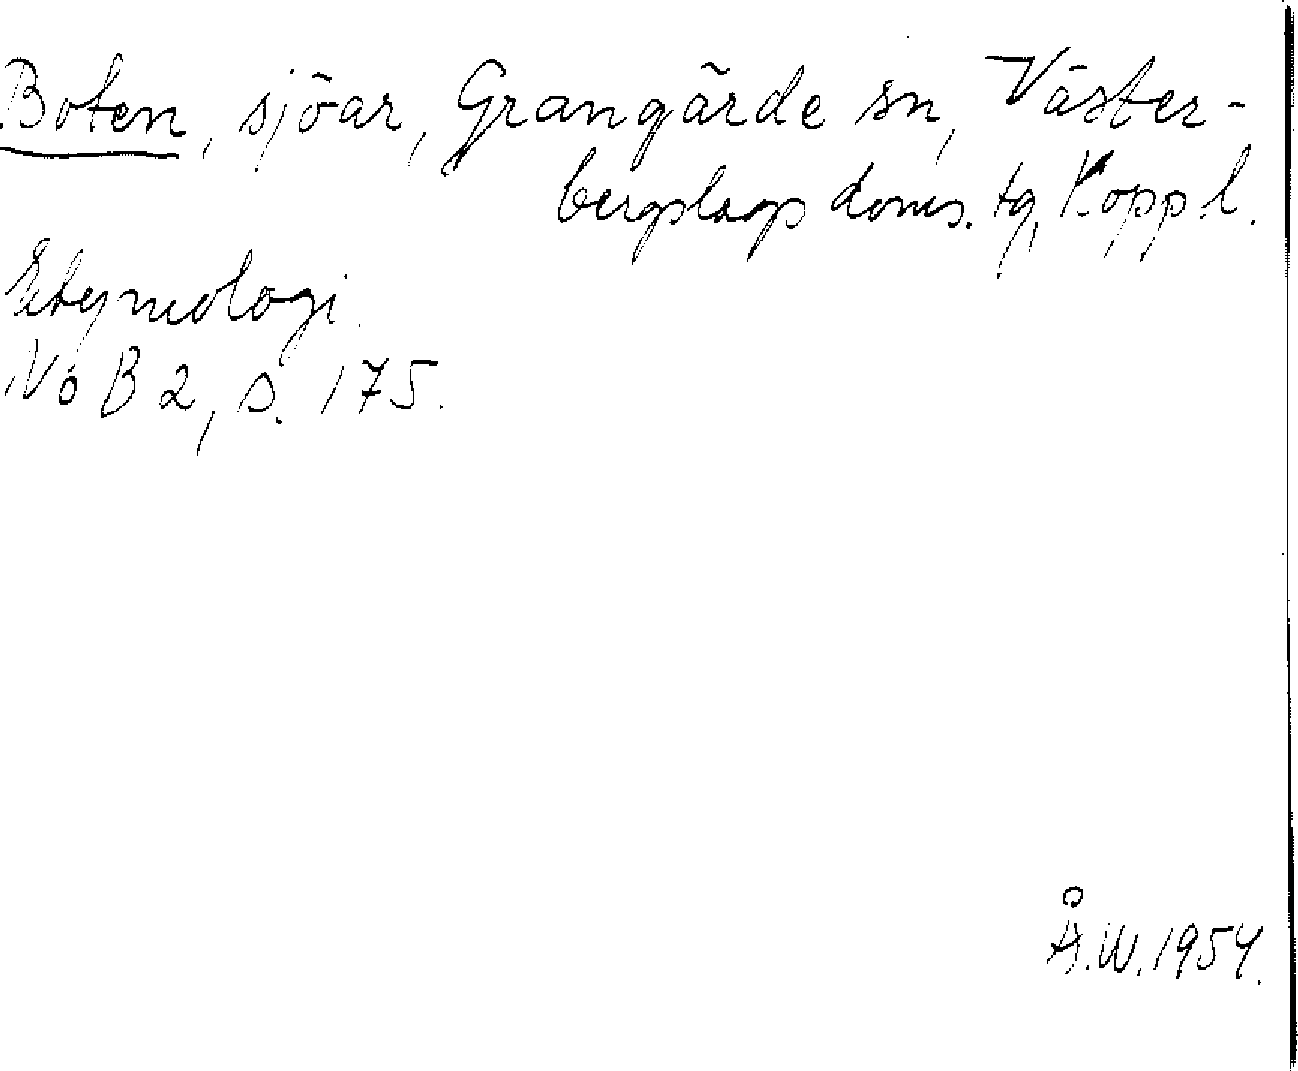 Boten, sjöar, Grangärde sn, Väster-
bergslags doms. tg, Kopp. l.
Etymologi.
NoB 2, s. 175.
Å.W. 1954.